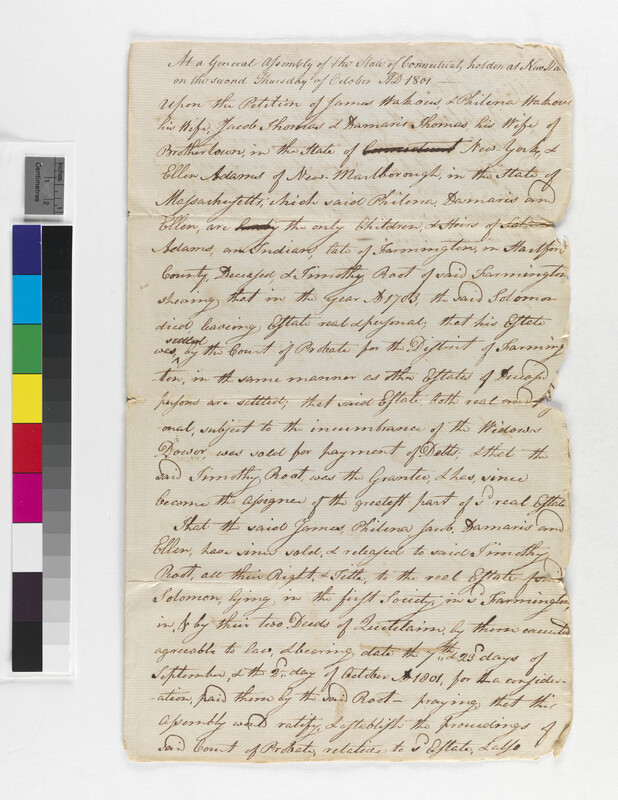 At a General Assembly of the State of Connecticut, holden at New Ha
on the second Thursday of October AD 1801 —
Upon the Petition of James Wahous & Philena Wahous
his Wife, Jacob Thomas & Damaris Thomas his Wife of
Brothertown, in the State of Connecticut New York, &
Ellen Adams of New Marlborough, in the State of
Massachusetts, which said Philena, Damaris and
Ellen, are the only Children, & Heirs of
Adams, an Indian, late of Farmington, in Hartford
County, Deceased & Timothy Root of said Farmington
shewing that in the year A 1783, the said Solomon
died leaving Estate real & personal; that his Estate
was settled by the Court of Probate for the District of Farming
-ton, in the same manner as the Estates of Deceasd
persons are settled; that said Estate both real and
onal, subject to the incumbrance of the Widows
Dower, was sold for payment of Debts, & that the
said Timothy Root, was the Grantee, & has, since
become the assignee of the greatest part of sd real Estate
That the said James, Philena Jacob, Damaris and
Ellen, have since sold, & released to said Timothy
Root, all their Right, & Title, to the real Estate of sd
Solomon, lying in the first Society, in sd Farmington,
in, & by their two Deeds of Quitclaim, by them executed
agreeable to law, & bearing date the 7th & 23d days of
September, & the 2d day of October A 1801, for the consider
-ation, paid them by the said Root — praying that this
Assembly would ratify, & establish the proceedings of
said Court of Probate, relative to sd Estate, & also
Inches
Centimetres